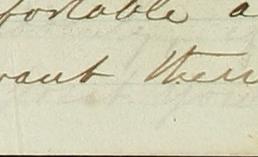 fortable a
want them